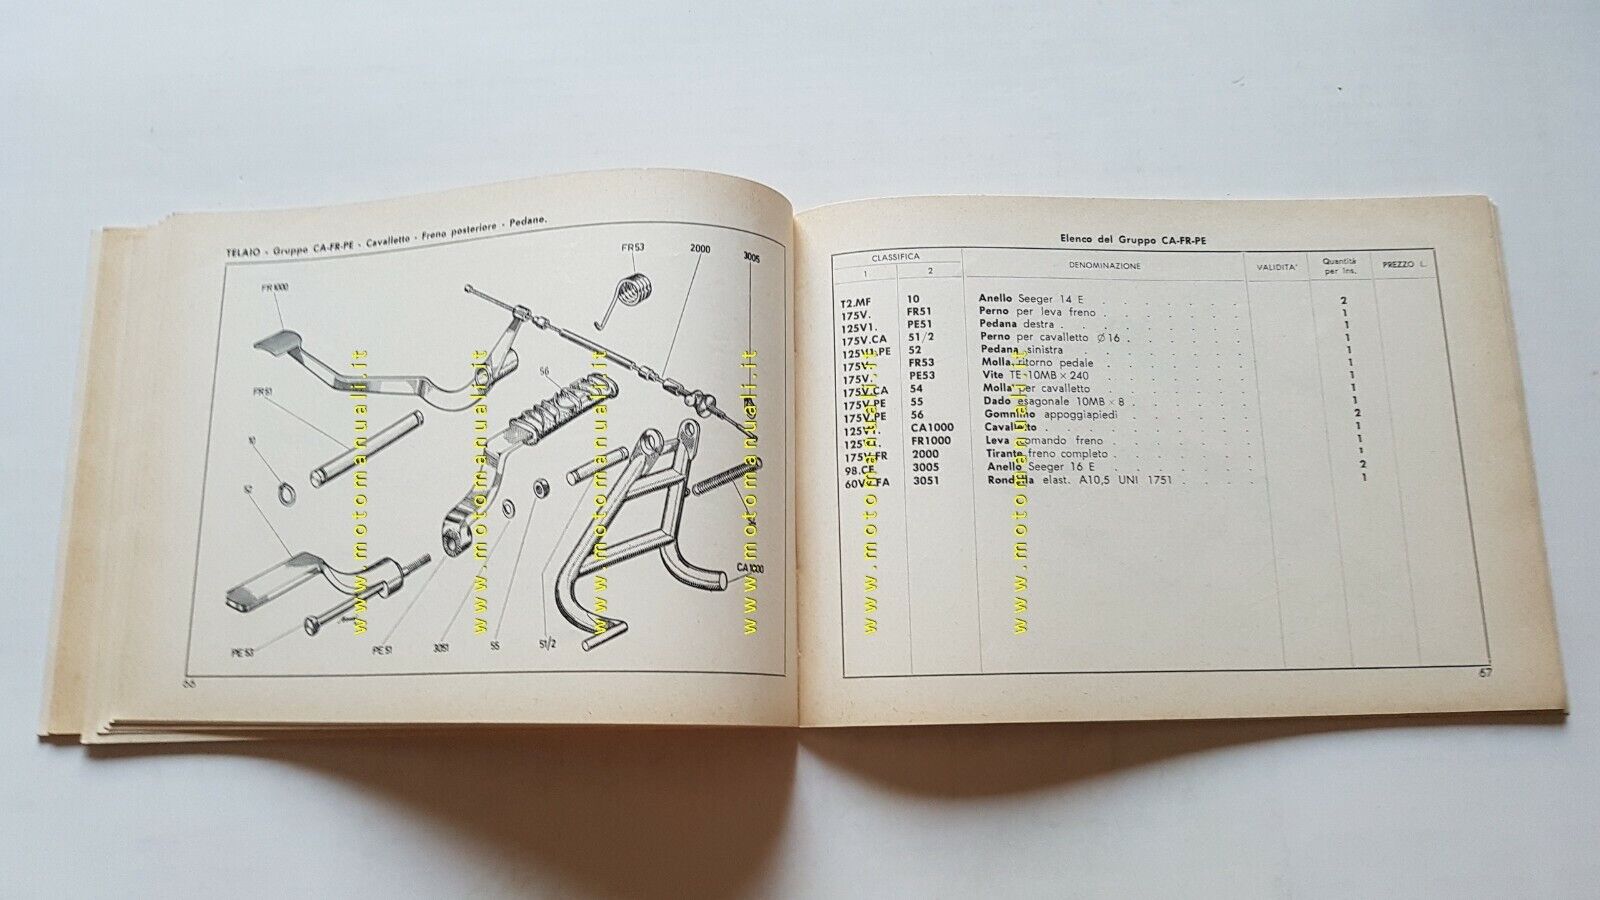 TELAIO - Gruppo CA-FR-PE - Cavalletto - Freno posteriore - Pedane.
FR1000
FR53
2000
3005
FR51
56
10
52
54
CA1000
PE53
PE51
3051
55
51/2
66
www.motomanuali.it
www.motomanuali.it
www.motomanuali.it
www.motomanuali.it
Elenco del Gruppo CA-FR-PE
CLASSIFICA DENOMINAZIONE VALIDITA' Quantità per Ins. PREZZO L.
1 2
T2.MF 10 Anello Seeger 14 E 2
175V. FR51 Perno per leva freno 1
125V1. PE51 Pedana destra 1
175V.CA 51/2 Perno per cavalletto Ø 16 1
125V1.PE 52 Pedana sinistra 1
175V. FR53 Molla ritorno pedale 1
175V. PE53 Vite TE 10MB × 240 1
175V.CA 54 Molla per cavalletto 1
175V.PE 55 Dado esagonale 10MB × 8 1
175V.PE 56 Gommino appoggiapiedi 2
125V1. CA1000 Cavalletto 1
125V1. FR1000 Leva comando freno 1
175V.FR 2000 Tirante freno completo 1
98.CF 3005 Anello Seeger 16 E 2
3051 Rondella elast. A10,5 UNI 1751 1
67
www.motomanuali.it
www.motomanuali.it